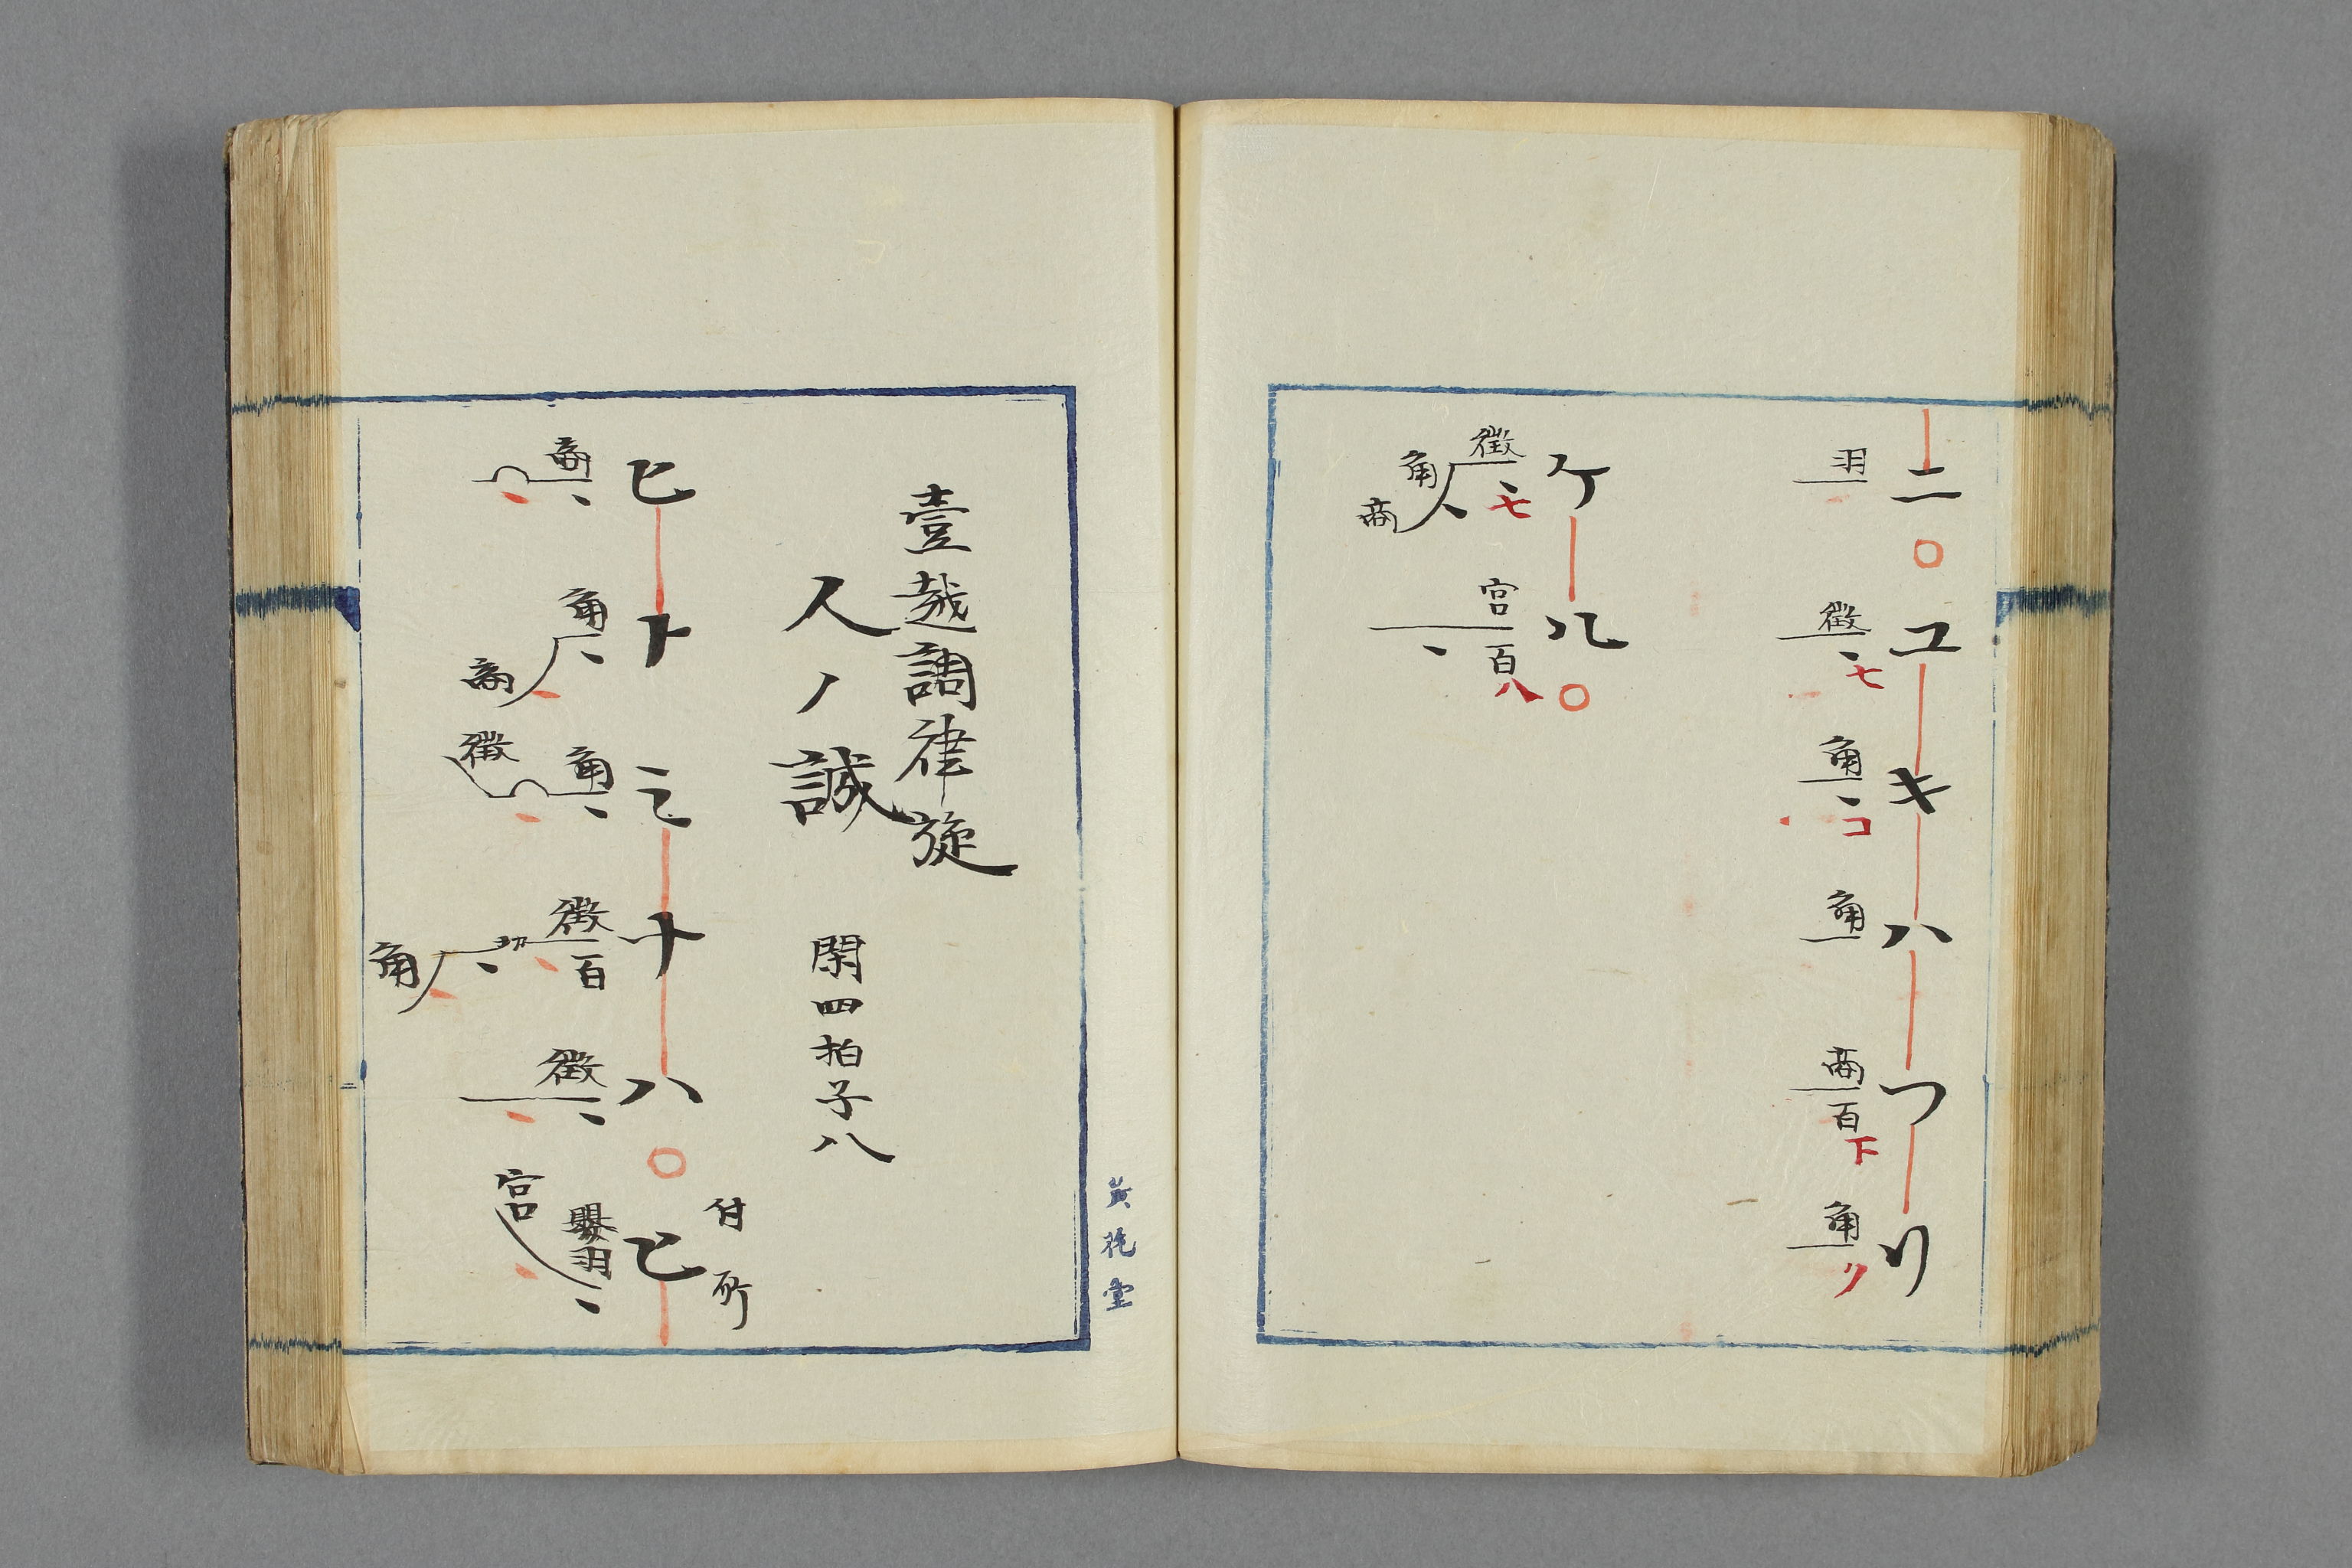 ニ〇ユキハツリ
羽
徴、七
角、コ
角
商百下
角ク
ケル〇
徴、七
角、
商
宮、百八
壹越調律旋
人ノ誠
閑四拍子八
ヒトミナハ〇ヒ
付所
商、
角、
商
角、
徴
徴百
角
徴、
嬰羽、
宮